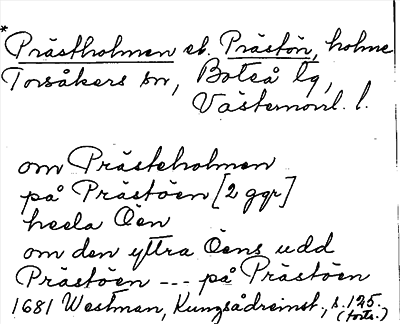 *
Prästholmen el. Prästön, holme
Torsåkers sn, Boteå tg,
Västernorrl. l.
om Prästeholmen
på Prästöen [2 ggr]
heela Öen
om den yttra Öens udd
Prästöen --- på Prästöen
1681 Westman, Kungsådreinst., s. 125.
(forts.)